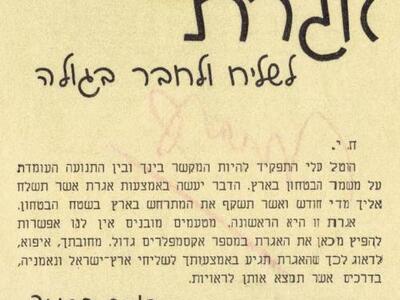 אגרת
לשליח ולחבר בגולה
ח. י.
הוטל עלי התפקיד להיות המקשר בינך ובין התנועה העומדת
על משמר הבטחון בארץ. הדבר יעשה באמצעות אגרת אשר תשלח
אליך מדי חודש ואשר תשקף את המתרחש בארץ בשטח הבטחון.
אגרת זו היא הראשונה. מטעמים מובנים אין לנו אפשרות
להפיץ מכאן את האגרת במספר אקסמפלרים גדול. מחובתך, איפוא,
לדאוג לכך שהאגרת תגיע באמצעותך לשליחי ארץ-ישראל ונאמניה,
בדרכים אשר תמצא אותן לראויות.